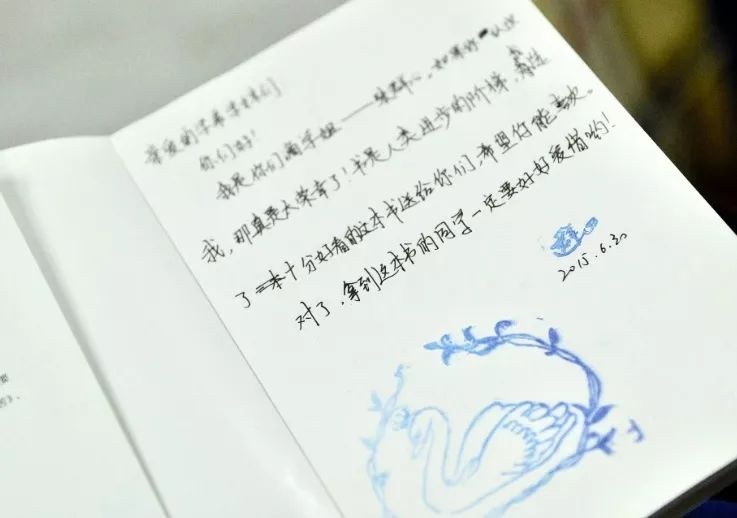 亲爱的学弟学妹们
你们好!
我是你们的学姐——朱 心,如果你 认识
我,那真是太荣幸了!书是人类进步的阶梯,我选
了一本十分好看的这本书送给你们,希望你能喜欢。
对了,拿到这本书的同学一定要好好爱惜哟!
2015.6.30